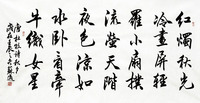 红烛秋光
冷画屏轻
罗小扇扑
流萤天阶
夜色凉如
水卧看牵
牛织女星
唐杜牧诗秋夕